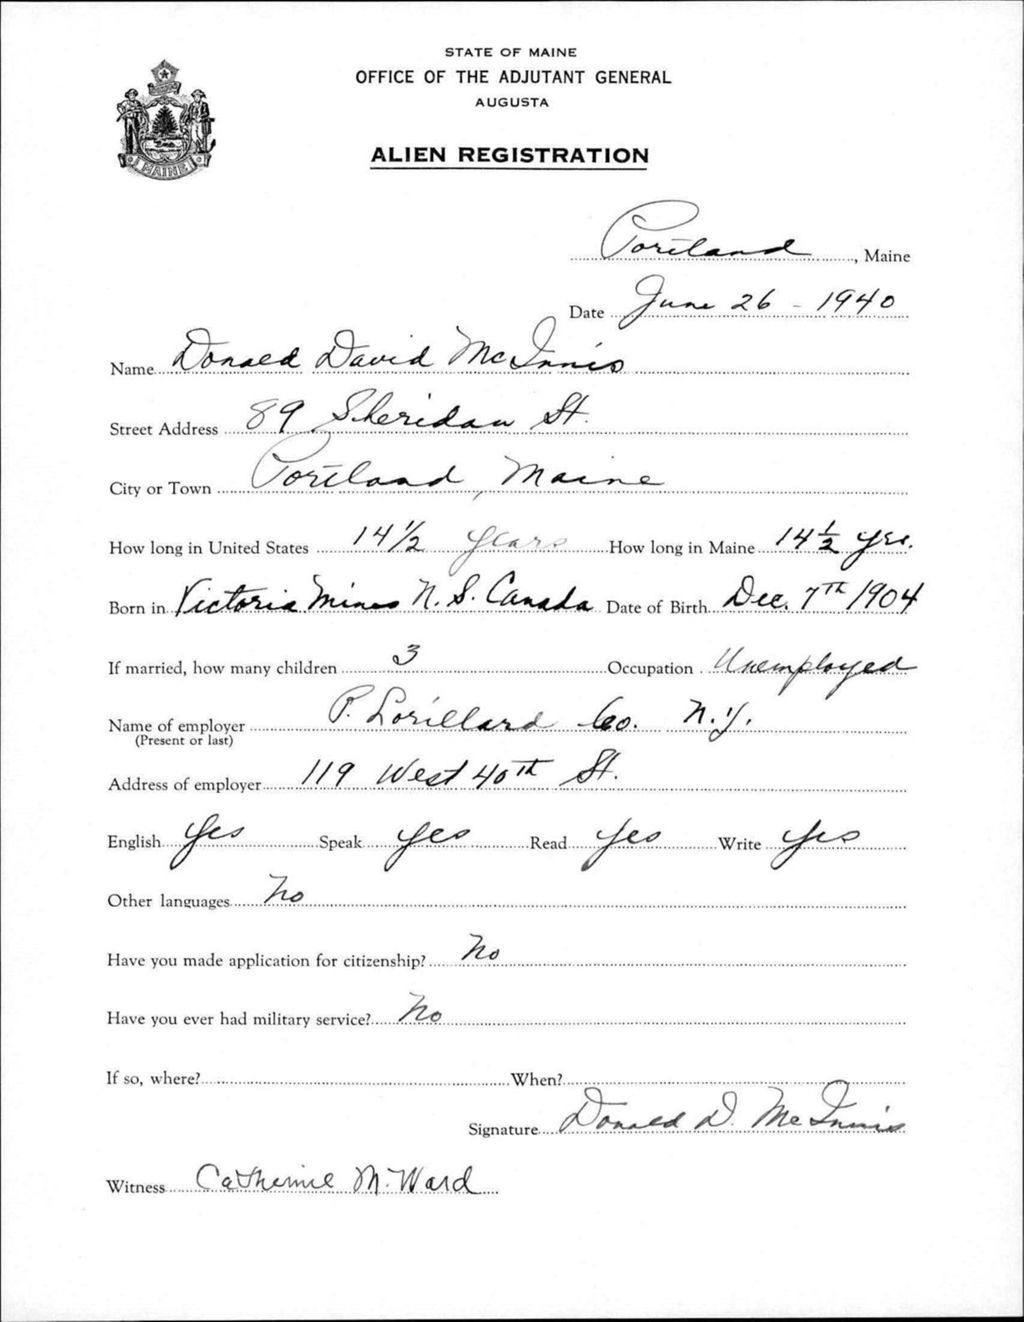 STATE OF MAINE
OFFICE OF THE ADJUTANT GENERAL
AUGUSTA
ALIEN REGISTRATION
MAINE
Portland, Maine
Date June 26 - 1940
Name Donald David McInnis
Street Address 89 Sheridan St.
City or Town Portland, Maine
How long in United States 14 1/2 years How long in Maine 14 1/2 yrs.
Born in Victoria Mines N.S. Canada Date of Birth Dec. 7th 1904
If married, how many children 3 Occupation Unemployed
Name of employer P. Lorillard Co. N.Y.
(Present or last)
Address of employer 119 West 40th St.
English Yes Speak yes Read yes Write yes
Other languages No
Have you made application for citizenship? No
Have you ever had military service? No
If so, where? When?
Signature Donald D. McInnis
Witness Catherine M. Ward